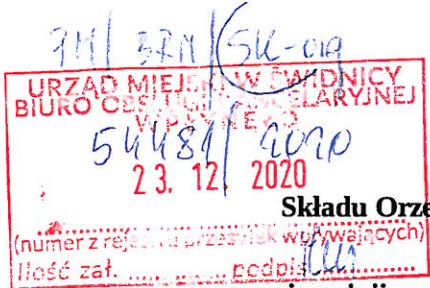 SK-019
URZĄD MIEJSKI W ŚWIDNICY
BIURO OBSŁUGI KANCELARYJNEJ
WPŁYNĘŁO
54481/2020
23. 12. 2020
Składu Orze
(numer z rejestru przesyłek wpływających)
Ilość zał. podpis